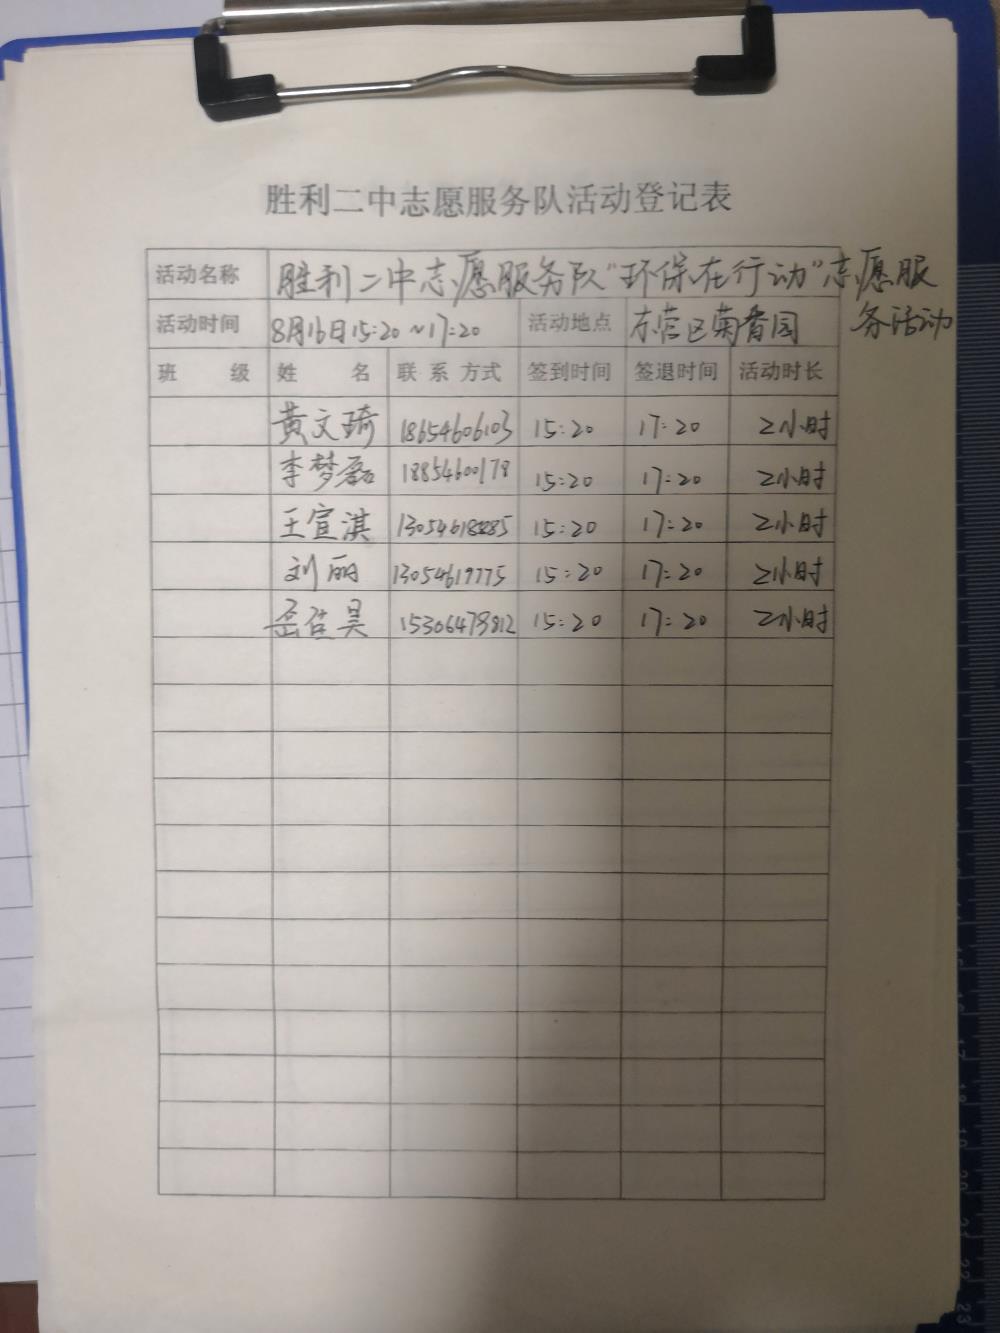 胜利二中志愿服务队活动登记表
活动名称 胜利二中志愿服务队"环保在行动"志愿服务活动
活动时间 8月16日15:20~17:20 活动地点 东营区菊香园
班 级 姓 名 联 系 方式 签到时间 签退时间 活动时长
黄文琦 18654606103 15:20 17:20 2小时
李梦磊 18854600178 15:20 17:20 2小时
王宣淇 15:20 17:20 2小时
刘丽 13054619775 15:20 17:20 2小时
岳佳昊 15306478812 15:20 17:20 2小时
15
16
17
18
19
20
21
22
23